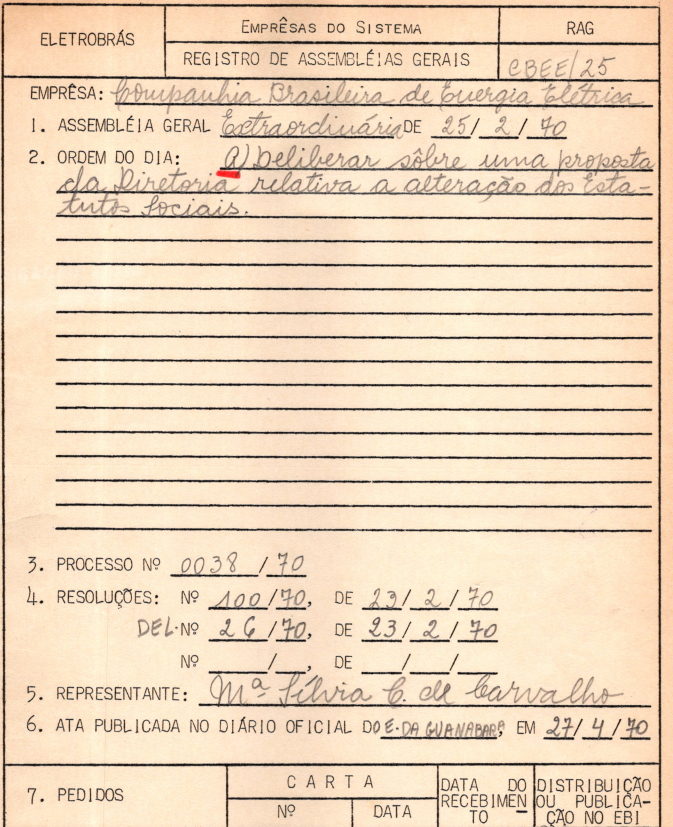 ELETROBRÁS
EMPRÊSAS DO SISTEMA
RAG
REGISTRO DE ASSEMBLÉIAS GERAIS
CBEE/25
EMPRÊSA: Companhia Brasileira de Energia Elétrica
1. ASSEMBLÉIA GERAL Extraordinária DE 25/2/70
2. ORDEM DO DIA: a) Deliberar sôbre uma proposta
da Diretoria relativa a alteração dos Esta-
tutos Sociais.
3. PROCESSO Nº 0038/70
4. RESOLUÇÕES: Nº 100/70, DE 23/2/70
DEL. Nº 26/70, DE 23/2/70
Nº ___/___, DE ___/___/___
5. REPRESENTANTE: Mª Sílvia C. de Carvalho
6. ATA PUBLICADA NO DIÁRIO OFICIAL DO E. DA GUANABARA, EM 27/4/70
7. PEDIDOS
CARTA
Nº
DATA
DATA DO
RECEBIMEN
TO
DISTRIBUIÇÃO
OU PUBLICA-
ÇÃO NO EBI